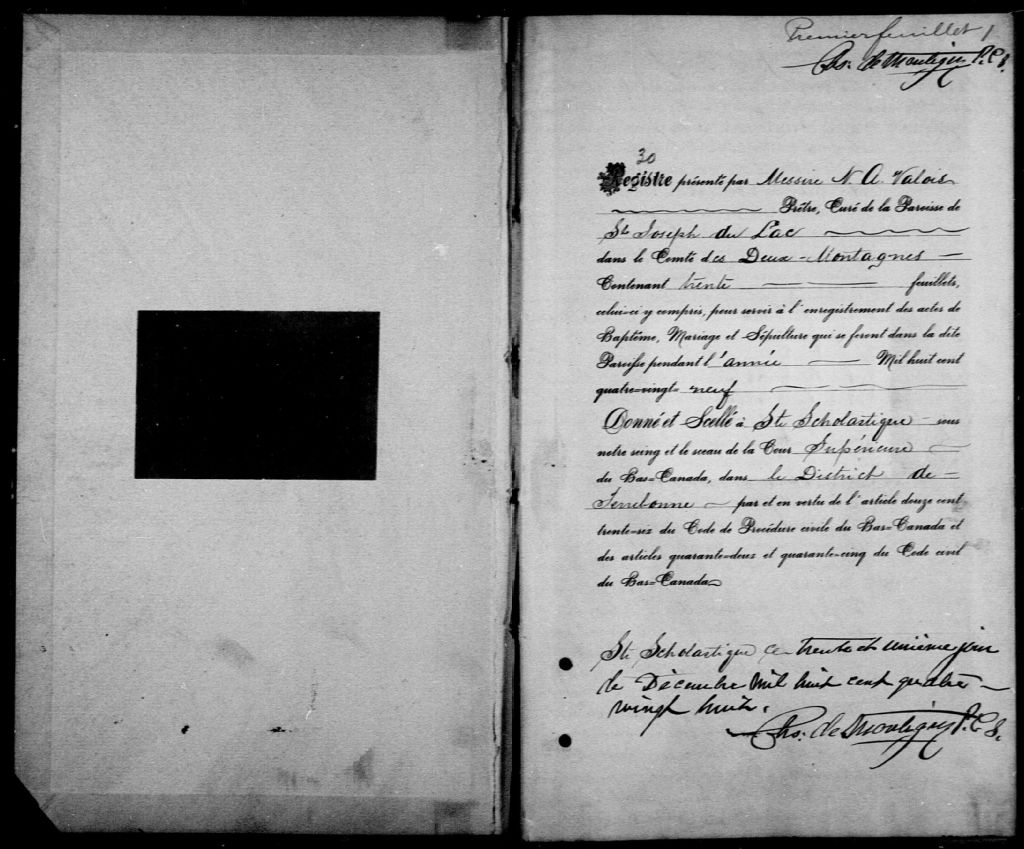 Premier feuillet 1
Chs. de Montigny P.C.S.
30
Registre présenté par Messire N. A. Valois
Prêtre, Curé de la Paroisse de
St Joseph du Lac
dans le Comté des Deux-Montagnes
Contenant trente feuillets,
celui-ci y compris, pour servir à l'enregistrement des actes de
Baptême, Mariage et Sépulture qui se feront dans la dite
Paroisse pendant l'année Mil huit cent
quatre-vingt-neuf
Donné et Scellé à Ste Scholastique sous
notre seing et le sceau de la Cour Supérieure
du Bas=Canada, dans le District de
Terrebonne par et en vertu de l'article douze cent
trente-six du Code de Procédure civile du Bas=Canada et
des articles quarante=deux et quarante=cinq du Code civil
du Bas=Canada
Ste Scholastique ce trente et unième jour
de Décembre mil huit cent quatre
vingt huit.
Chs. de Montigny P.C.S.